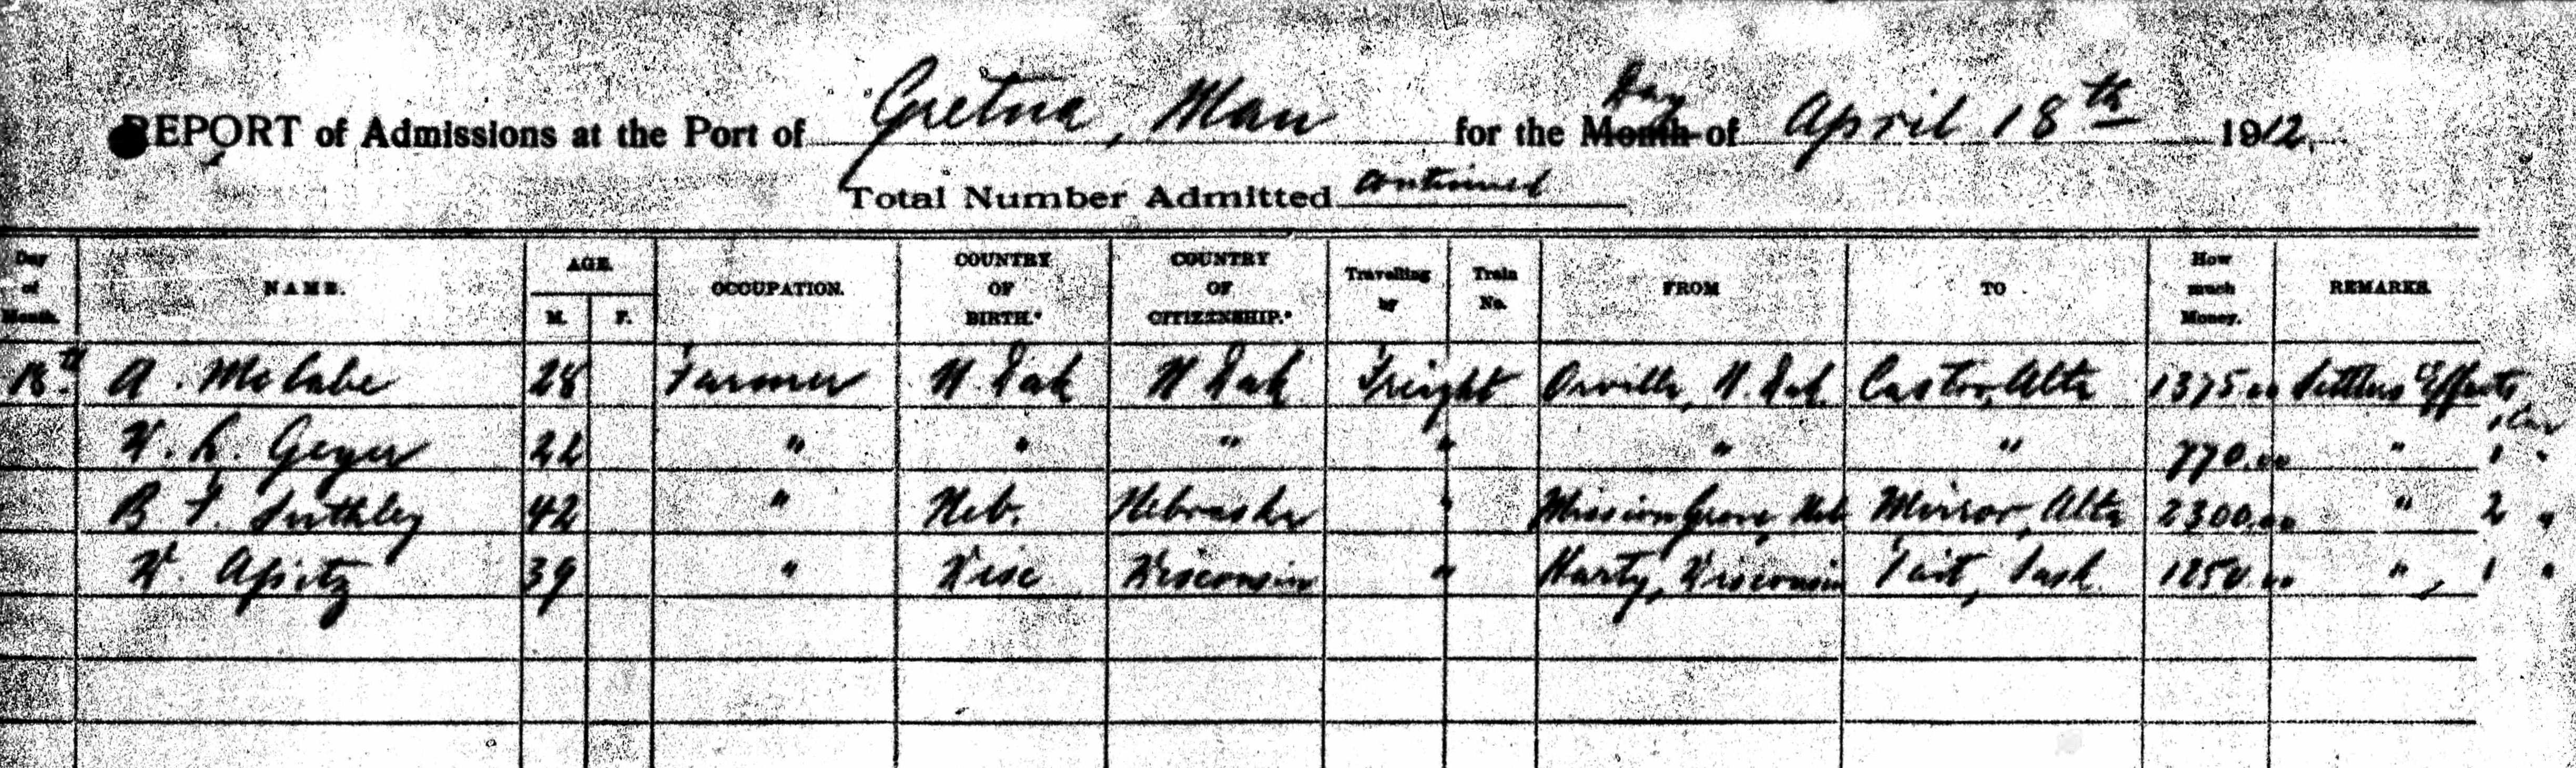 REPORT of Admissions at the Port of Gretna, Man for the Month Day of April 18th 1912.
Total Number Admitted continued
Day of Month. NAME. AGE. M. F. OCCUPATION. COUNTRY OF BIRTH.* COUNTRY OF CITIZENSHIP.* Travelling by Train No. FROM TO How much Money. REMARKS.
18th A. McCabe 28 Farmer N. Dak N Dak Freight Orville, N. Dak. Castor, Alta 1375.00 Settlers Effects, 1 Car
W. L. Geyer 22 " " " " " " 770.00 " 1 "
B F. 42 " Neb. Nebraska " Mission Grove, Neb Mirror, Alta 2300.00 " 2 "
W. Apitz 39 " Wisc Wisconsin " Harty, Wisconsin Tait, Sask. 1250.00 ", 1 "